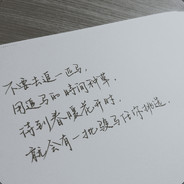 不要去追一匹马,
用追马的时间种草.
待到春暖花开时.
就会有一批骏马任你挑选.